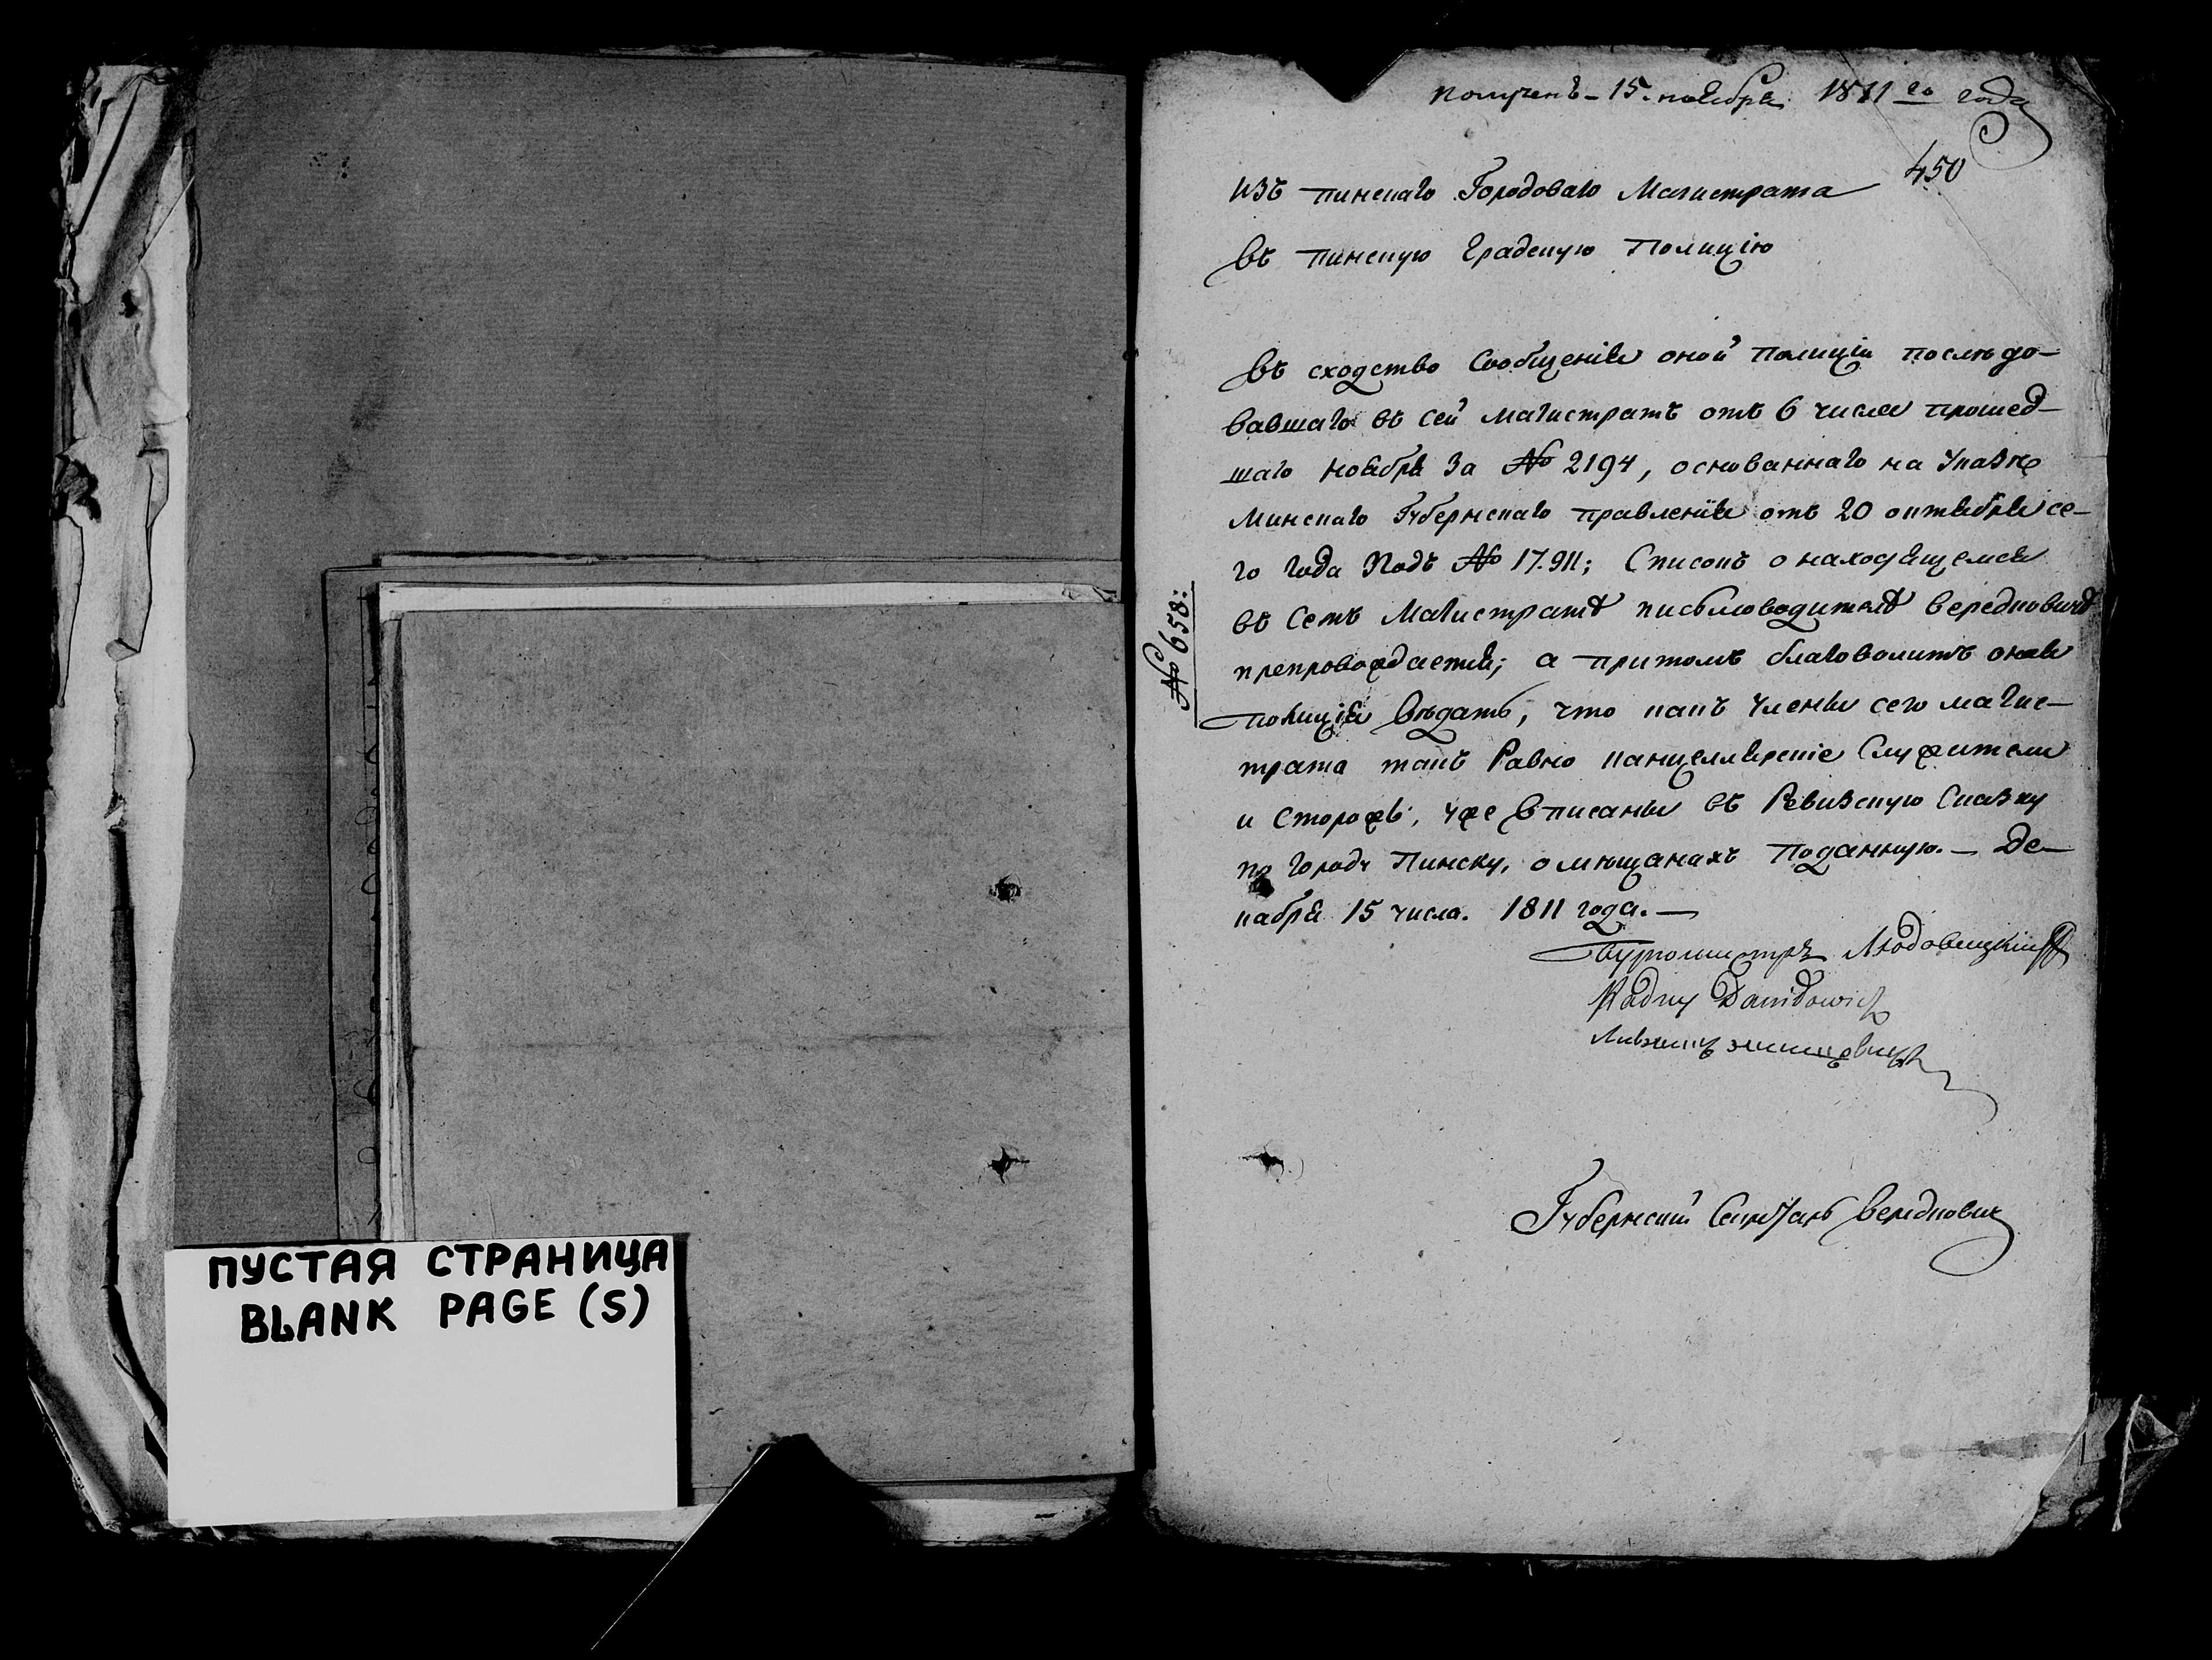 ПУСТАЯ СТРАНИЦА
BLANK PAGE (S)
полученъ - 15. ноября 1811го года
450
изъ пинскаго Городоваго Магистрата
въ пинскую Градскую Полицію
Въ сходство Сообщенія оной полиціи послѣдо-
вавшаго въ сей магистратъ отъ 6 числа прошед-
шаго ноября за № 2194, основаннаго на Указѣ
Минскаго Губернскаго правленія отъ 20 октября се-
го года подъ № 17.911; Списокъ о находящемся
въ семъ Магистратѣ письмоводителѣ Вередковичѣ
препровождается; а притомъ благоволитъ оная
полиція вѣдать, что какъ члены сего магис-
трата такъ Равно канцелярскіе Служители
и Сторожъ, уже вписаны въ Ревизскую Сказку
по городу Пинску, о мѣщанахъ поданную. — Де-
кабря 15 числа. 1811 года. —
№ 658:
Бургомистръ
Radny Dawidowicz
Губернскій Секретарь Вередкович